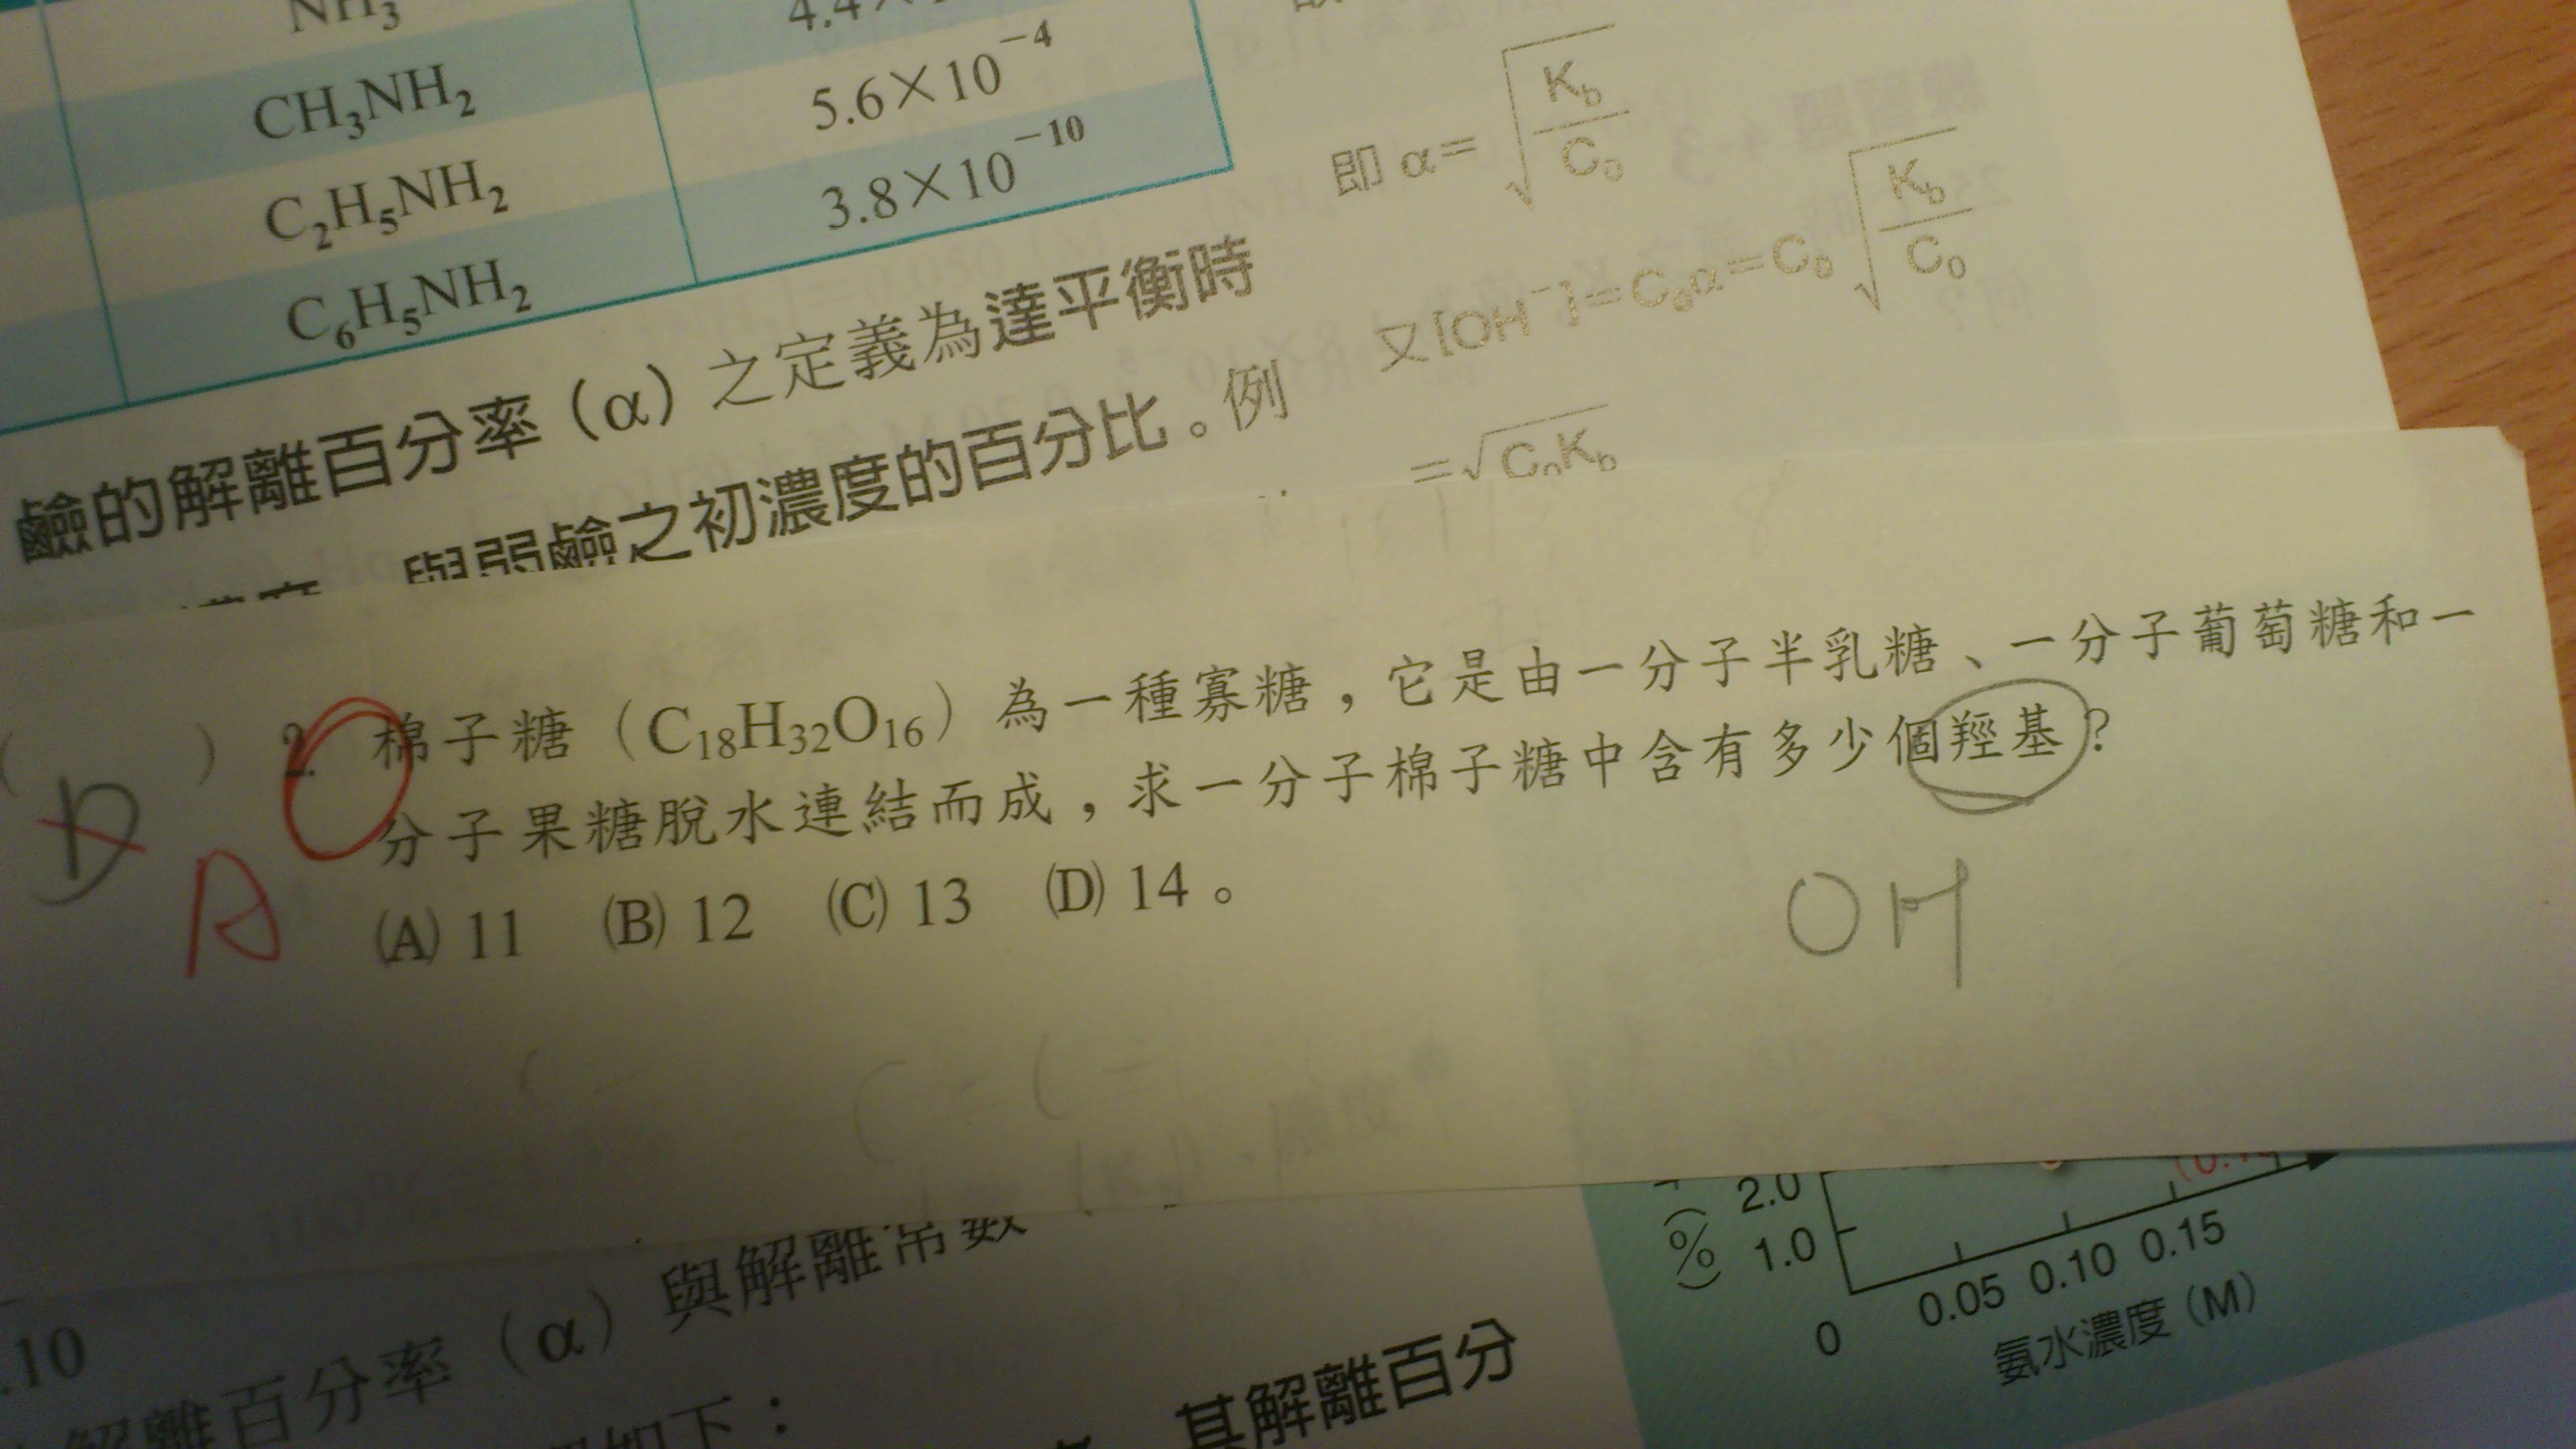 NH₃
4.4×
CH₃NH₂
5.6×10⁻⁴
C₂H₅NH₂
3.8×10⁻¹⁰
C₆H₅NH₂
鹼的解離百分率（α）之定義為達平衡時
與弱鹼之初濃度的百分比。例
即 α=√(K_b/C₀)
又[OH⁻]=C₀α=C₀√(K_b/C₀)
=√(C₀K_b)
( D ) 2. 棉子糖（C₁₈H₃₂O₁₆）為一種寡糖，它是由一分子半乳糖、一分子葡萄糖和一
A
分子果糖脫水連結而成，求一分子棉子糖中含有多少個羥基？
(A) 11 (B) 12 (C) 13 (D) 14。
OH
.10
解離百分率（α）與解離常數
如下：
其解離百分
(%)
2.0
1.0
0
0.05 0.10 0.15
氨水濃度（M）